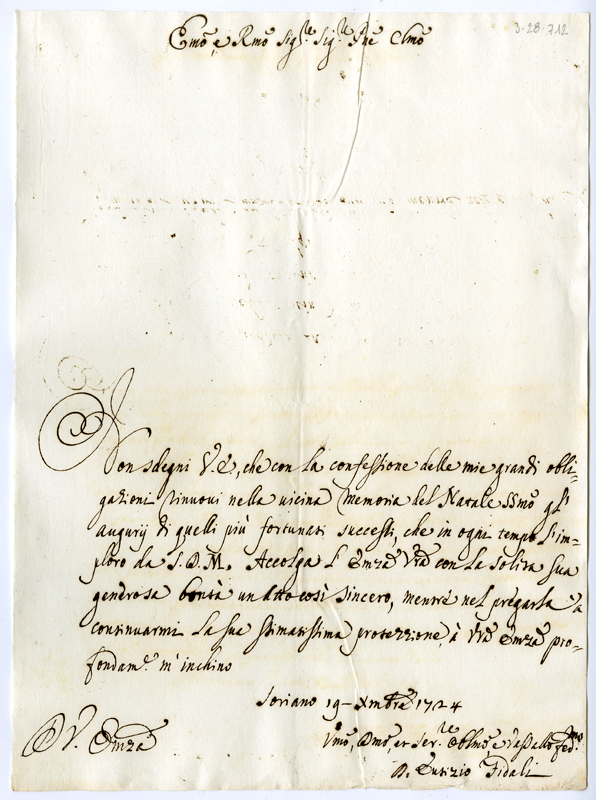 3-28-712
Emo, e Rmo Sigre Sigre Pne Clmo
Non sdegni V. E., che con la confessione delle mie grandi obli-
gazioni rinuovi nella vicina memoria del Natale SSmo gl'
augurij di quelli più fortunati successi, che in ogni tempo l'im-
ploro da S. D. M. Accolga l'Emza Vra con la solita sua
generosa bontà un atto così sincero, mentre nel pregarla a
continuarmi la sua stimatissima protezzione, à Vra Emza pro-
fondamte m'inchino
Soriano 19 Xmbre 1724
D V. Emza
Vmo, Dmo, et Serre Oblmo, e Vassallo fedmo
D. Eutizio Fidali